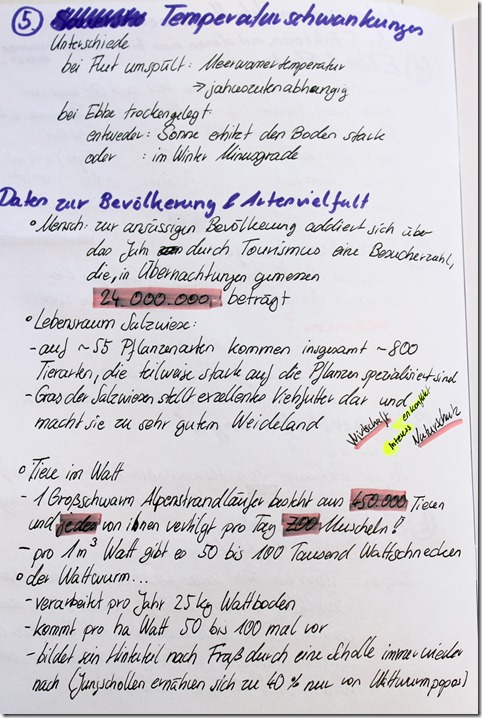 ⑤ Temperaturschwankungen
Unterschiede
bei Flut umspült: Meerwassertemperatur
→ jahreszeitenabhängig
bei Ebbe trockengelegt:
entweder: Sonne erhitzt den Boden stark
oder : im Winter Minusgrade
Daten zur Bevölkerung & Artenvielfalt
° Mensch: zur ansässigen Bevölkerung addiert sich über
das Jahr durch Tourismus eine Besucherzahl,
die, in Übernachtungen gemessen
24.000.000,- beträgt
° Lebensraum Salzwiese:
- auf ~ 55 Pflanzenarten kommen insgesamt ~ 800
Tierarten, die teilweise stark auf die Pflanzen spezialisiert sind
- Gras der Salzwiesen stellt exzellentes Viehfutter dar und
macht sie zu sehr gutem Weideland
Wirtschaft Interessenkonflikt Naturschutz
° Tiere im Watt
- 1 Großschwarm Alpenstrandläufer besteht aus 450.000 Tieren
und jeder von ihnen vertilgt pro Tag 700 Muscheln!
- pro 1 m³ Watt gibt es 50 bis 100 Tausend Wattschnecken
° der Wattwurm...
- verarbeitet pro Jahr 25 kg Wattboden
- kommt pro ha Watt 50 bis 100 mal vor
- bildet sein Hinterteil nach Fraß durch eine Scholle immer wieder
nach (Jungschollen ernähren sich zu 40 % nur von Wattwurmpopos)